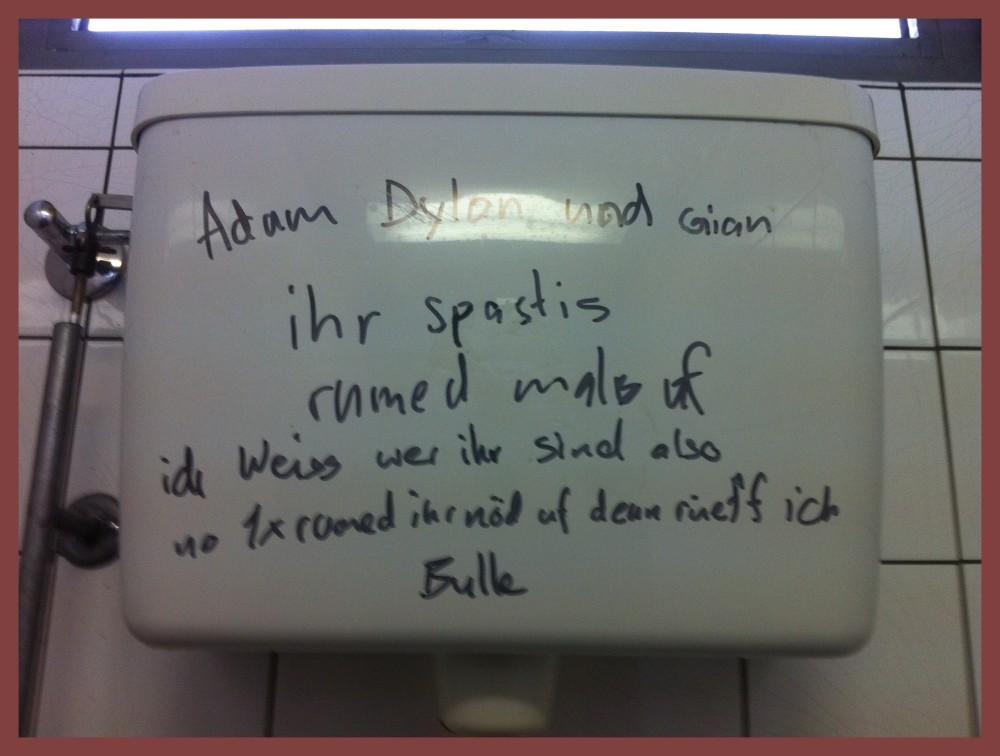 Adam Dylan und Gian
ihr spastis
rumed mals uf
ich Weiss wer ihr sind also
no 1x rumed ihr nöd uf denn rüeff ich
Bulle